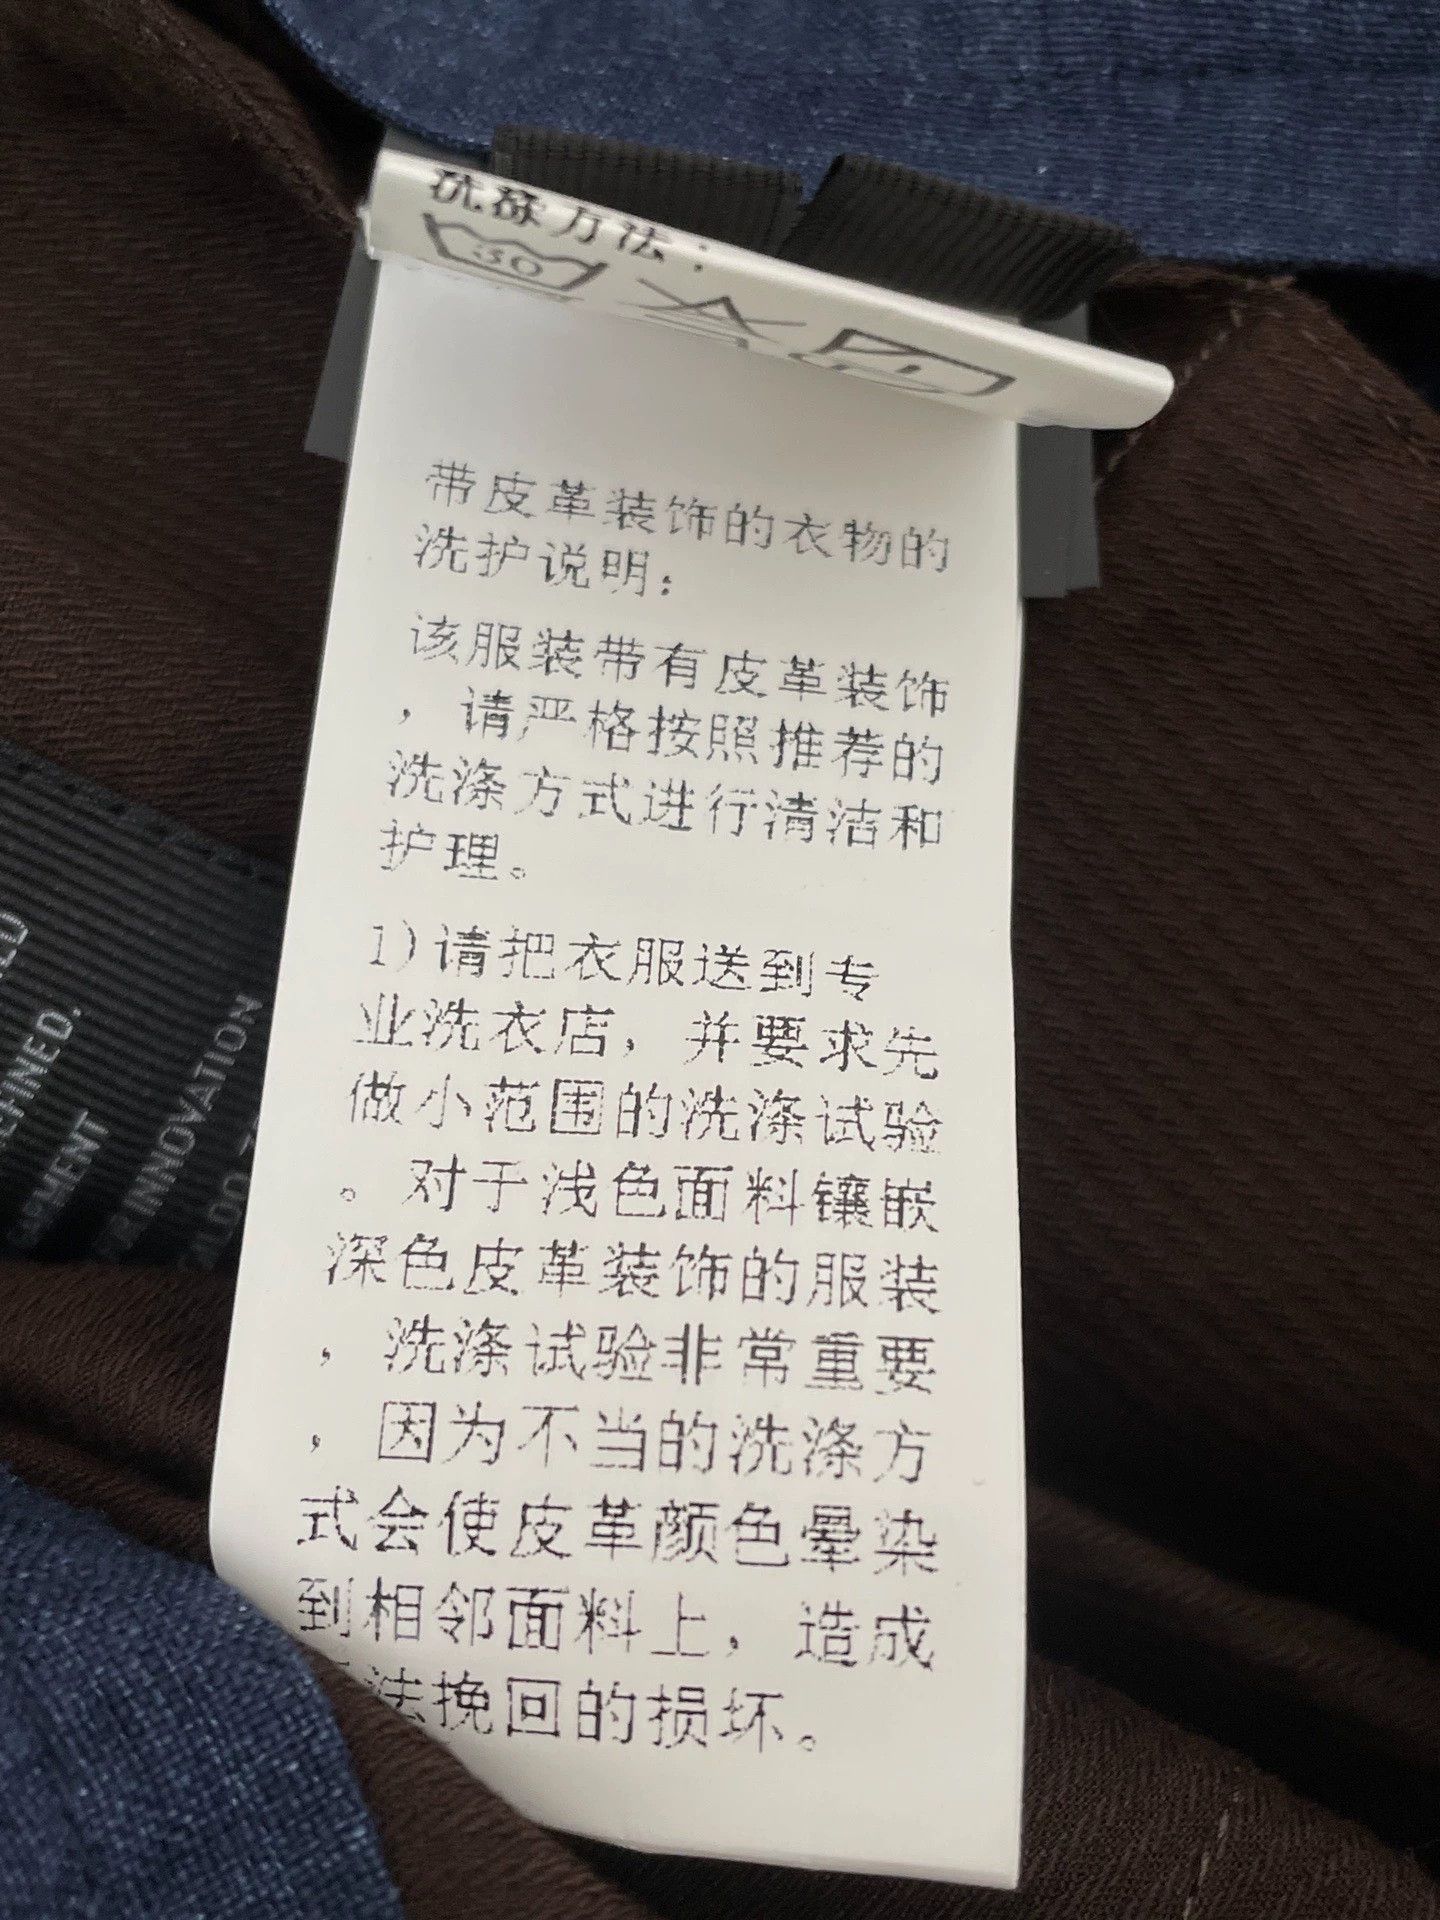 洗涤方法：
30
带皮革装饰的衣物的
洗护说明：
该服装带有皮革装饰
，请严格按照推荐的
洗涤方式进行清洁和
护理。
1)请把衣服送到专
业洗衣店，并要求先
做小范围的洗涤试验
。对于浅色面料镶嵌
深色皮革装饰的服装
，洗涤试验非常重要
，因为不当的洗涤方
式会使皮革颜色晕染
到相邻面料上，造成
法挽回的损坏。
INNOVATION